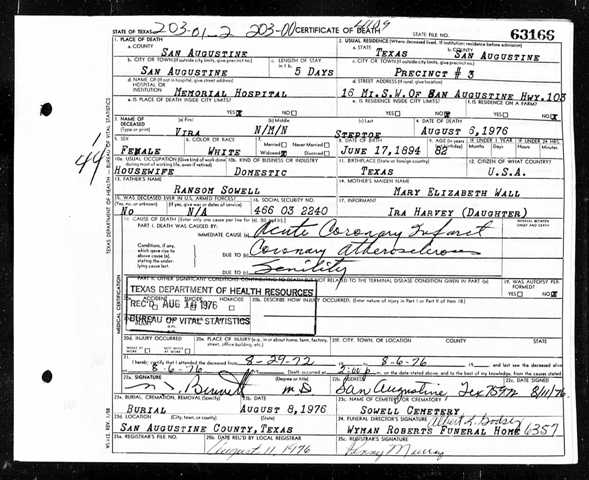 STATE OF TEXAS 203-01-2 203-00 CERTIFICATE OF DEATH STATE FILE NO. 63166
1. PLACE OF DEATH 2. USUAL RESIDENCE (Where deceased lived. If institution: residence before admission)
a. COUNTY SAN AUGUSTINE a. STATE TEXAS b. COUNTY SAN AUGUSTINE
b. CITY OR TOWN (If outside city limits, give precinct no.) c. LENGTH OF STAY c. CITY OR TOWN (If outside city limits, give precinct no.)
SAN AUGUSTINE 5 DAYS PRECINCT # 3
d. NAME OF (If not in hospital, give street address) HOSPITAL OR INSTITUTION d. STREET ADDRESS (If rural, give location)
MEMORIAL HOSPITAL 16 MI.S.W.OF SAN AUGUSTINE HWY.103
e. IS PLACE OF DEATH INSIDE CITY LIMITS? e. IS RESIDENCE INSIDE CITY LIMITS? f. IS RESIDENCE ON A FARM?
YES NO YES NO YES NO
3. NAME OF DECEASED (Type or print) (a) First (b) Middle (c) Last 4. DATE OF DEATH
VIRA N/M/N STEPTOE AUGUST 6,1976
5. SEX 6. COLOR OR RACE 7. Married Never Married 8. DATE OF BIRTH 9. AGE IF UNDER 1 YEAR IF UNDER 24 HRS.
FEMALE WHITE Widowed Divorced JUNE 17,1894 82 Months Days Hours Minutes
10a. USUAL OCCUPATION (Give kind of work done during most of working life, even if retired) 10b. KIND OF BUSINESS OR INDUSTRY 11. BIRTHPLACE (State or foreign country) 12. CITIZEN OF WHAT COUNTRY?
HOUSEWIFE DOMESTIC TEXAS U.S.A.
13. FATHER'S NAME 14. MOTHER'S MAIDEN NAME
RANSOM SOWELL MARY ELIZABETH WALL
15. WAS DECEASED EVER IN U.S. ARMED FORCES? 16. SOCIAL SECURITY NO. 17. INFORMANT
(Yes, no, or unknown) (If yes, give war or dates of service)
NO N/A 466 03 2240 IRA HARVEY (DAUGHTER)
18. CAUSE OF DEATH (Enter only one cause per line for (a), (b), and (c).) INTERVAL BETWEEN ONSET AND DEATH
PART I. DEATH WAS CAUSED BY:
IMMEDIATE CAUSE (a) Acute Coronary Infarct
Conditions, if any, which gave rise to above cause (a), stating the underlying cause last.
DUE TO (b) Coronary Atherosclerosis
DUE TO (c) Senility
PART II. OTHER SIGNIFICANT CONDITIONS CONTRIBUTING TO DEATH BUT NOT RELATED TO THE TERMINAL DISEASE CONDITION GIVEN IN PART I(a) 19. WAS AUTOPSY PERFORMED?
YES NO
TEXAS DEPARTMENT OF HEALTH RESOURCES
ACCIDENT SUICIDE HOMICIDE 20b. DESCRIBE HOW INJURY OCCURRED. (Enter nature of injury in Part I or Part II of item 18.)
REC'D AUG 16 1976
BUREAU OF VITAL STATISTICS
INJURY
20d. INJURY OCCURRED 20e. PLACE OF INJURY (e.g., in or about home, farm, factory, street, office building, etc.) 20f. CITY, TOWN, OR LOCATION COUNTY STATE
21. I hereby certify that I attended the deceased from 8-29-72 8-6-76 and last saw the deceased alive
8-6-76 Death occurred at 2:00 p.m. on the date stated above, and to the best of my knowledge, from the causes stated
22a. SIGNATURE (Degree or title) 22b. ADDRESS 22c. DATE SIGNED
Bennett M D San Augustine Tex 75972 8/11/76
23a. BURIAL, CREMATION, REMOVAL (Specify) 23b. DATE 23c. NAME OF CEMETERY OR CREMATORY
BURIAL AUGUST 8,1976 SOWELL CEMETERY
23d. LOCATION (City, town, or county) (State) 24. FUNERAL DIRECTOR'S SIGNATURE
SAN AUGUSTINE COUNTY,TEXAS WYMAN ROBERTS FUNERAL HOME 6357
25a. REGISTRAR'S FILE NO. 25b. DATE REC'D BY LOCAL REGISTRAR 25c. REGISTRAR'S SIGNATURE
August 11, 1976 Murray
TEXAS DEPARTMENT OF HEALTH - BUREAU OF VITAL STATISTICS
MEDICAL CERTIFICATION